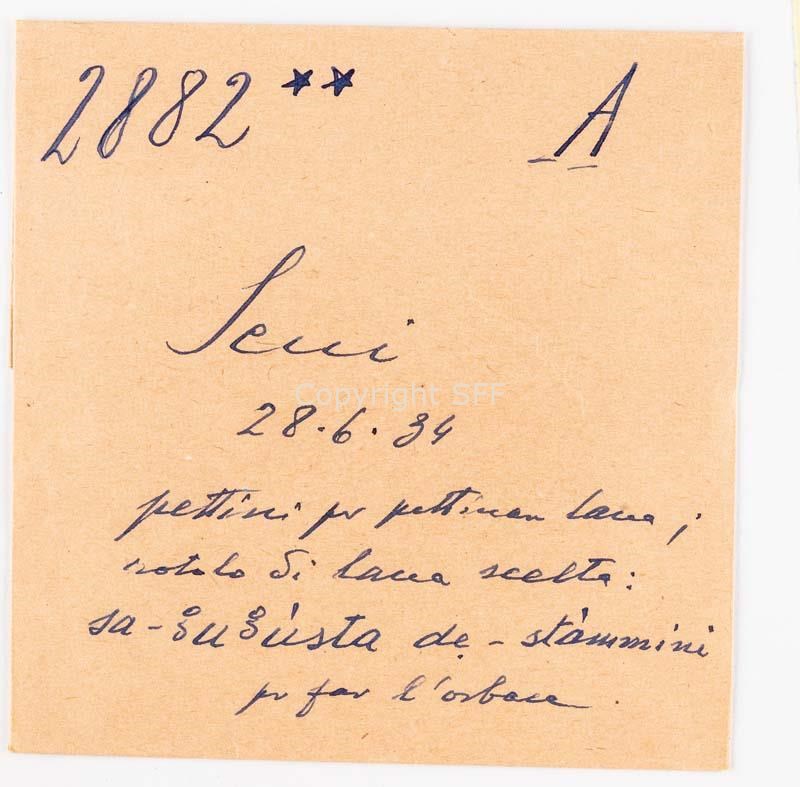 2882** A
Seui
Copyright SFF
28.6.34
pettini pr pettinar lana;
rotolo di lana scelta:
de - stàmmini
pr far l'orbace.